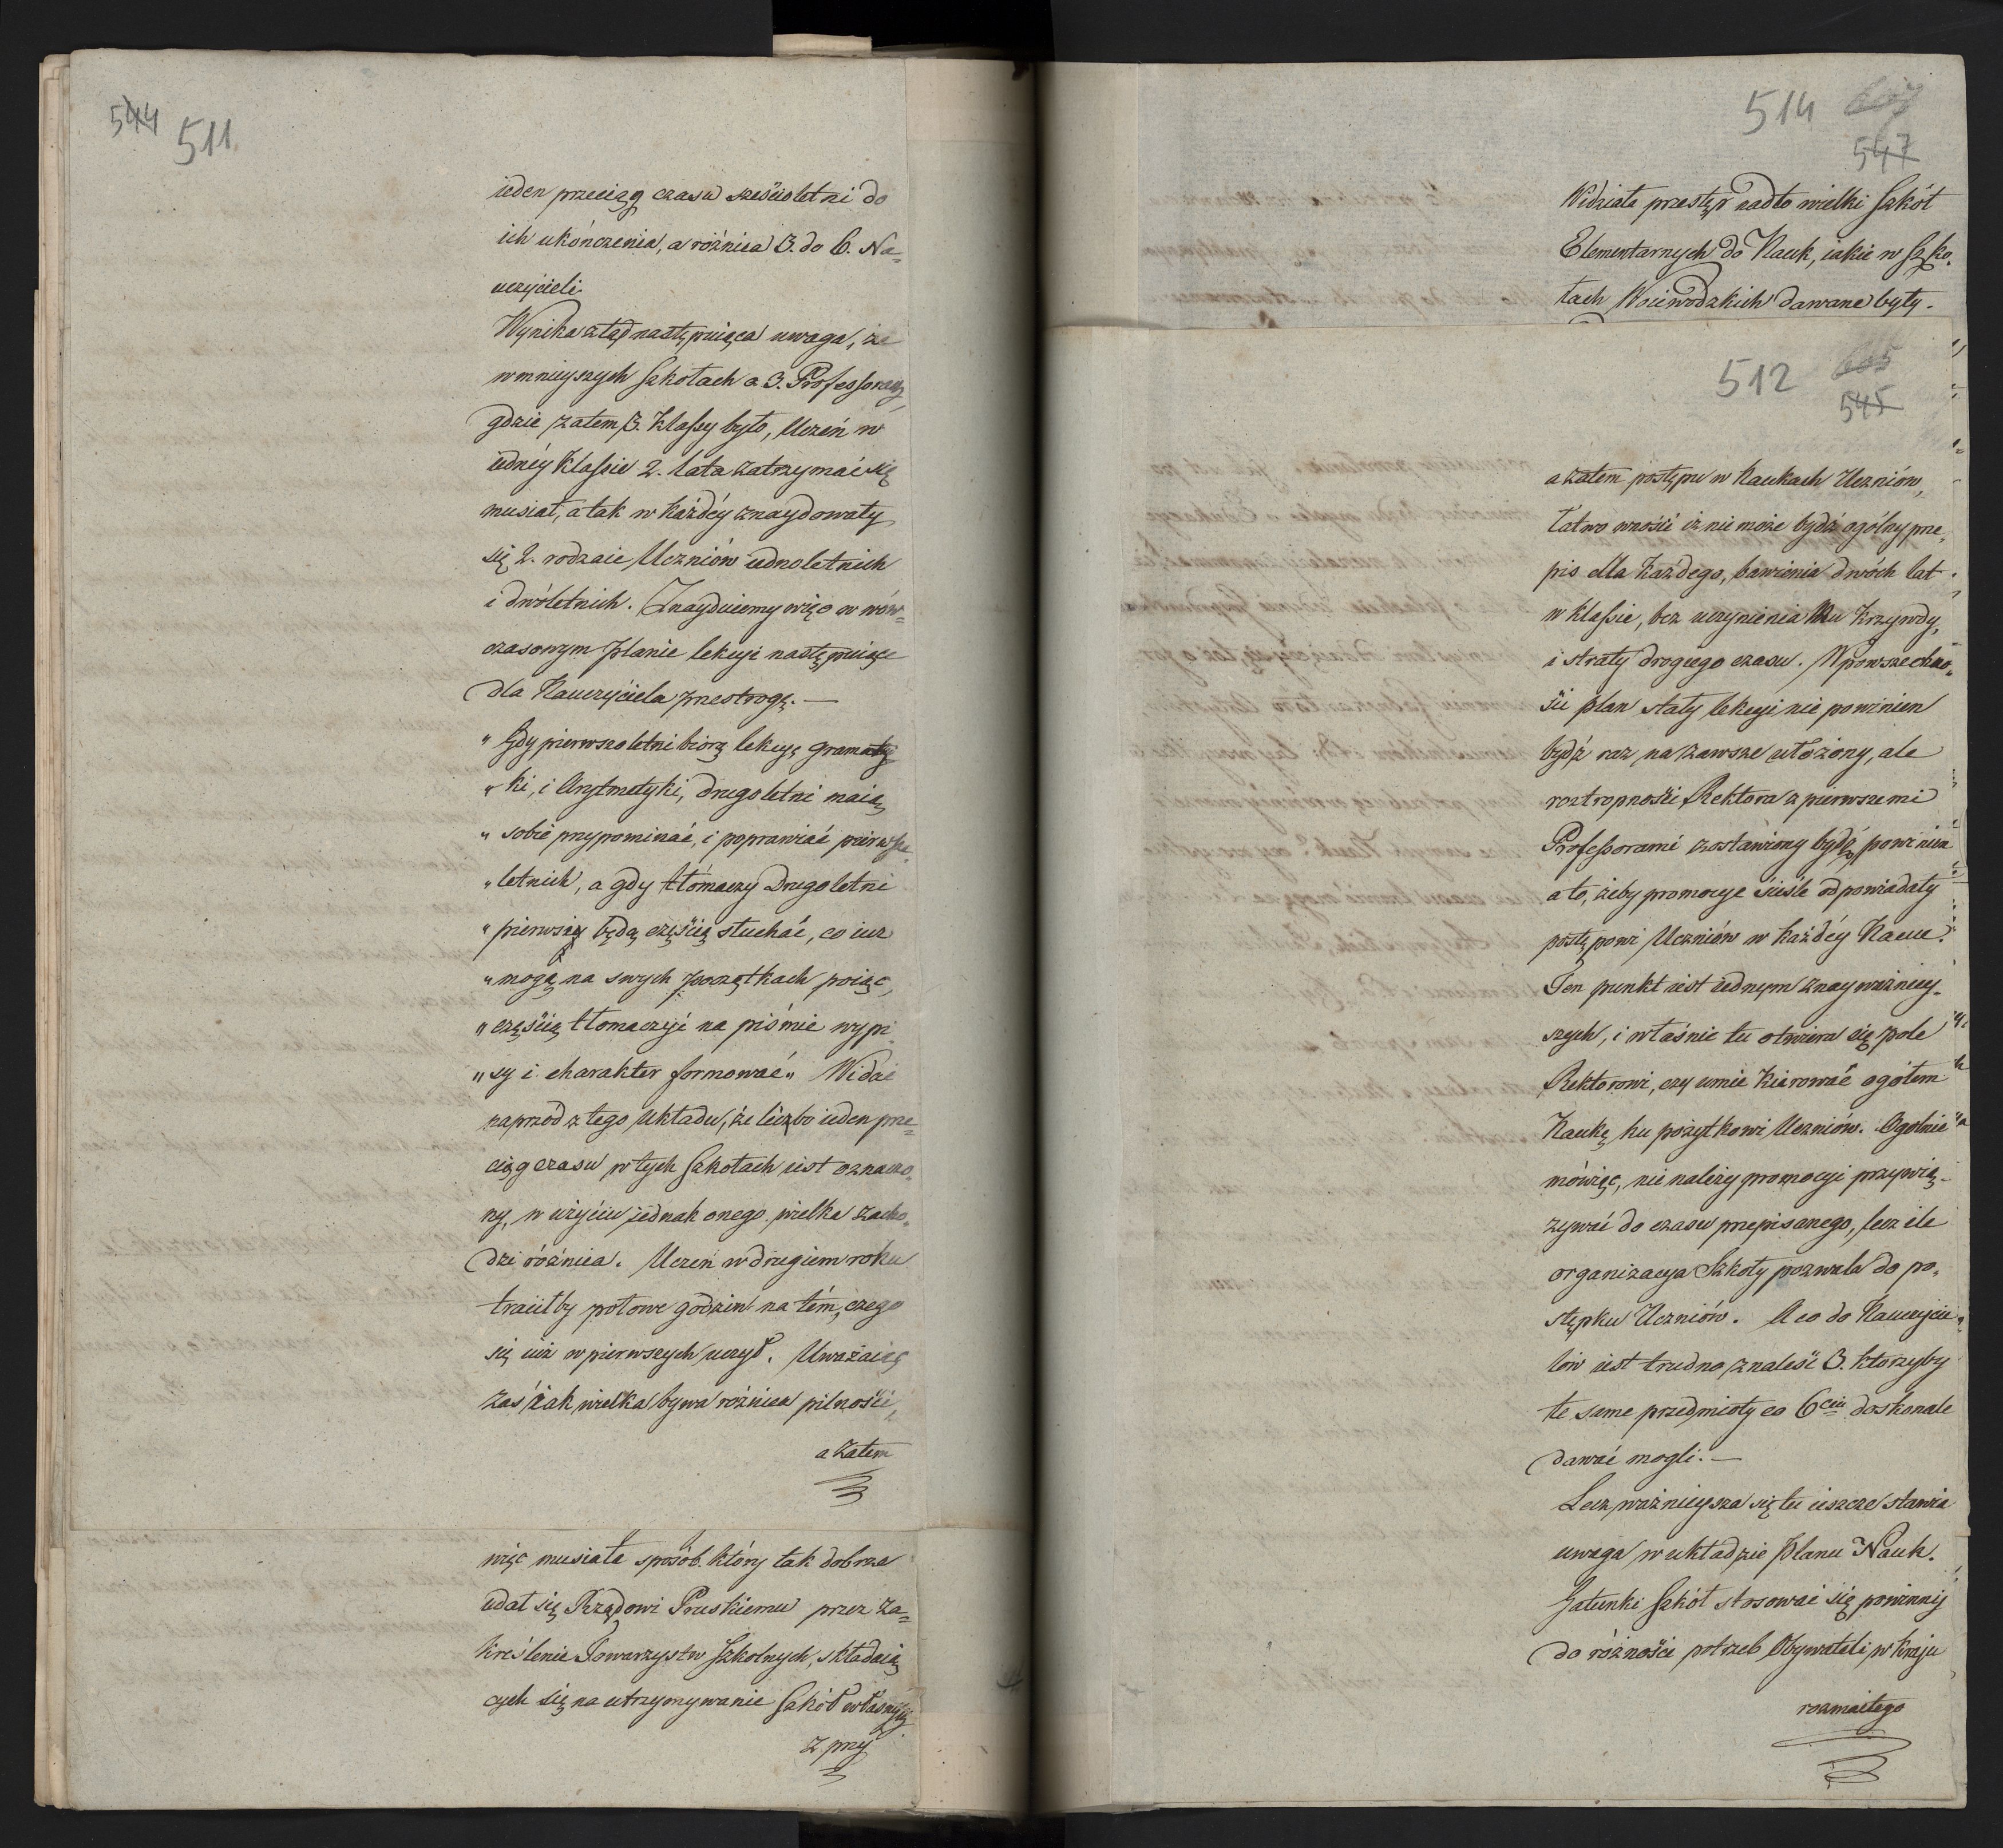 544 511
ieden przeciąg czasu sześcioletni do
ich ukończenia, a różnica 3. do 6. Na=
uczycieli.
Wynika ztąd następuiąca uwaga, że
w mnieyszych Szkołach o 3. Professorach,
gdzie zatem 3. Klassy było, Uczeń w
iedney Klassie 2. lata zatrzymać się
musiał, a tak w każdéy znaydowały
się 2. rodzaie Uczniów iednoletnich
i dwóletnich. Znayduiemy więc w ów=
czasowym planie lekcyi następuiące
dla Nauczyciela przestrogę. —
„ Gdy pierwszoletni biorą lekcyą Gramaty
„ ki, i Arytmetyki, drugoletni maią
„ sobie przypominać, i poprawiać pierwszo
„ letnich, a gdy tłómaczy Drugoletni
„ pierwsi będą częścią słuchać, co iuż
„ mogą na swych początkach poiąć,
„ częścią tłomaczyć na piśmie wypi
„ sy i charakter formować „ Widać
naprzód z tego układu, że liczbo ieden prze=
ciąg czasu w tych Szkołach iest oznaczo=
ny, w użyciu jednak onego wielka zacho=
dzi różnica. Uczeń w drugiem roku
traciłby połowe godzin na tém, czego
się iuż w pierwszych uczył. Uważaiąc
zaś iak wielka bywa różnica pilności,
a zatem
więc musiała sposób. który tak dobrze
udał się Rządowi Pruskiemu przez za=
kreślenie Towarzystw Szkolnych, składaią
cych się na utrzymywanie Szkół własnych
z przy
514
547
Widziała przestęp nadto wielki Szkół
Elementarnych do Nauk, iakie w Szko=
łach Woiewodzkich dawane były.
512 605
545
a zatem postępu w Naukach Uczniów,
łatwo wnosić iż nie może bydź ogólny prze=
pis dla każdego, bawienia dwóch lat
w klassie, bez uczynienia mu krzywdy,
i straty drogiego czasu. W powszechno=
ści plan stały lekcyi nie powinien
bydź raz na zawsze ułożony, ale
roztropności Rektora z pierwszemi
Professorami zostawiony bydź powinien
a to, żeby promocye ściśle odpowiadały
postępowi Uczniów w każdéy Nauce.
Ten punkt iest iednym z nayważniey=
szych, i właśnie tu otwiera się pole
Rektorowi, czy umie kierować ogółem
Naukę ku pożytkowi Uczniów. Ogolnie
mówiąc, nie należy promocyi przywią=
zywać do czasu przepisanego, lecz ile
organizacya Szkoły pozwala do po=
stępku Uczniów. A co do Nauczycie=
lów iest trudno znaleść 3. ktorzyby
te same przedmioty co 6ciu doskonale
dawać mogli. —
Lecz ważnieysza się tu ieszcze stawia
uwaga w układzie planu Nauk.
Gatunki Szkół stosować się powinny
do różności potrzeb Obywateli w kraju
rozmaitego